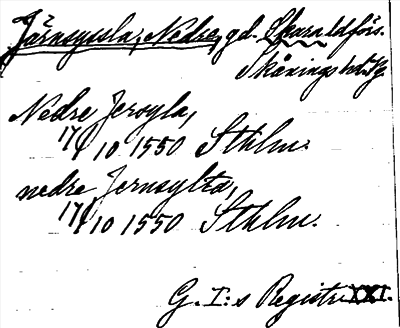 Järnsyssla, Nedre, gd. Skara ldförs.
Skånings hd. Sg.
Nedre Jersyla,
17/10 1550 Sthlm.
nedre Jernsylta,
17/10 1550 Sthlm.
G. I:s Registr XXI.